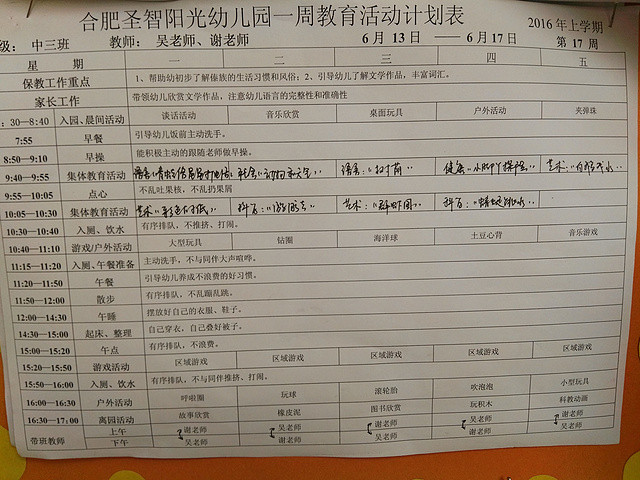 合肥圣智阳光幼儿园一周教育活动计划表
2016年上学期
级: 中三班 教师: 吴老师、谢老师 6月13日 ——6月17日 第17周
星 期 一 二 三 四 五
保教工作重点 1、帮助幼初步了解傣族的生活习惯和风俗; 2、引导幼儿了解文学作品, 丰富词汇。
家长工作 带领幼儿欣赏文学作品, 注意幼儿语言的完整性和准确性
:30—8:40 入园、晨间活动 谈话活动 音乐欣赏 桌面玩具 户外活动 夹弹珠
7:55 早餐 引导幼儿饭前主动洗手。
8:50—9:10 早操 能积极主动的跟随老师做早操。
9:40—9:55 集体教育活动 语言: 健康: 艺术:
9:55—10:05 点心 不乱吐果核, 不乱扔果屑
10:05—10:30 集体教育活动 艺术: 科百: 艺术: 科百:
10:30—10:40 入厕、饮水 有序排队, 不推挤、打闹。
10:40—11:10 游戏/户外活动 大型玩具 钻圈 海洋球 土豆心背 音乐游戏
11:15—11:20 入厕、午餐准备 主动洗手, 不与同伴大声喧哗。
11:20—11:50 午餐 引导幼儿养成不浪费的好习惯。
11:50—12:00 散步 有序排队, 不乱蹦乱跳。
12:00—14:30 午睡 摆放好自己的衣服、鞋子。
14:30—15:00 起床、整理 自己穿衣, 自己叠好被子。
15:00—15:20 午点 有序排队, 不浪费。
15:20—15:50 游戏活动 区域游戏 区域游戏 区域游戏 区域游戏 区域游戏
15:50—16:00 入厕、饮水 有序排队, 不与同伴推挤、打闹。
16:00—16:30 户外活动 呼啦圈 玩球 滚轮胎 吹泡泡 小型玩具
16:30—17:00 离园活动 故事欣赏 橡皮泥 图书欣赏 玩积木 科教动画
带班教师 上午 谢老师 吴老师 谢老师 吴老师 谢老师
下午 吴老师 谢老师 吴老师 谢老师 吴老师